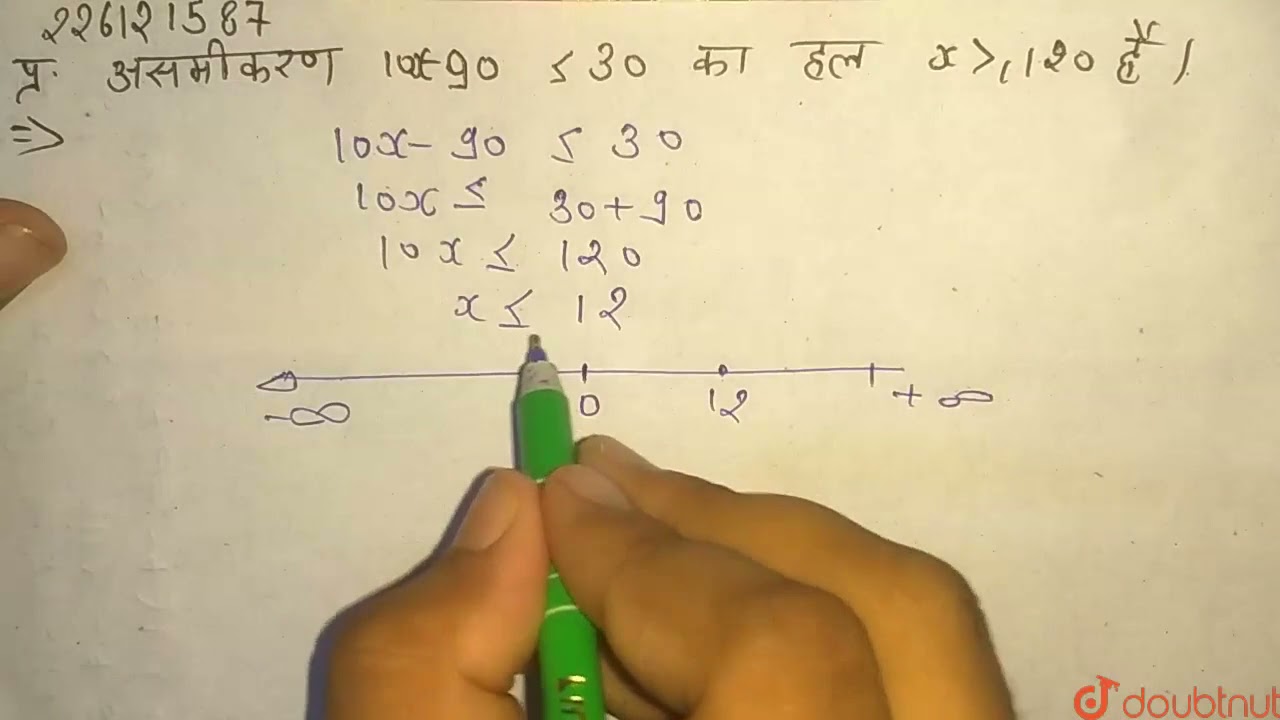 226121587
प्र. असमीकरण 10x-90 ≤ 30 का हल x ≥ 120 है ।
⇒
10x - 90 ≤ 30
10x ≤ 30 + 90
10x ≤ 120
x ≤ 12
-∞ 0 12 +∞
doubtnut